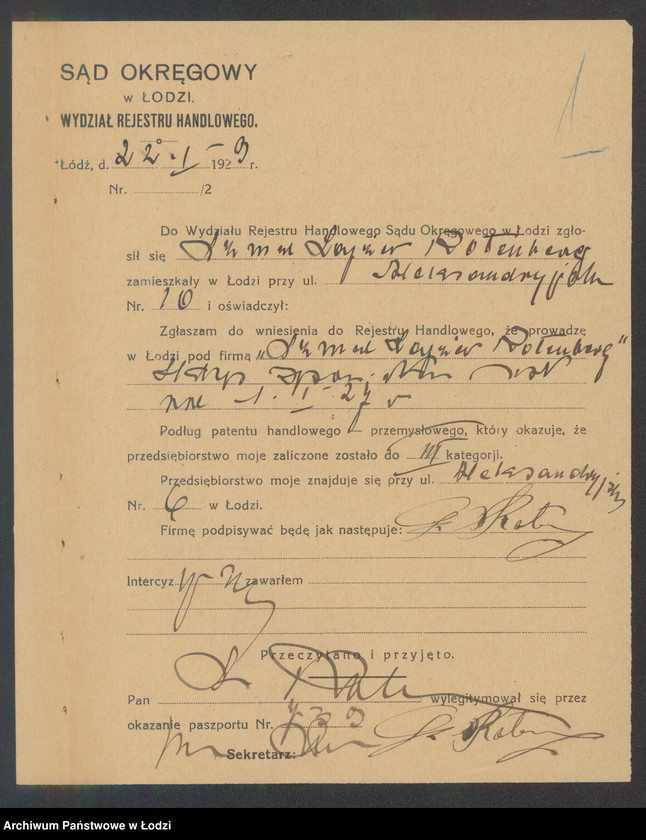 SĄD OKRĘGOWY
w ŁODZI.
WYDZIAŁ REJESTRU HANDLOWEGO.
Łódź, d. 22-I- 1929 r.
Nr. /2
Do Wydziału Rejestru Handlowego Sądu Okręgowego w Łodzi zgło-
sił się Szmul Lajzer Rotenberg
zamieszkały w Łodzi przy ul. Aleksandryjska
Nr. 10 i oświadczył:
Zgłaszam do wniesienia do Rejestru Handlowego, że prowadzę
w Łodzi pod firmą „Szmul Lajzer Rotenberg"
1. I- 27 r
Podług patentu handlowego — przemysłowego, który okazuje, że
przedsiębiorstwo moje zaliczone zostało do III kategorji.
Przedsiębiorstwo moje znajduje się przy ul. Aleksandryjska
Nr. 6 w Łodzi.
Firmę podpisywać będę jak następuje:
Intercyz zawarłem
Przeczytano i przyjęto.
Pan wylegitymował się przez
okazanie paszportu Nr.
Sekretarz:
Archiwum Państwowe w Łodzi